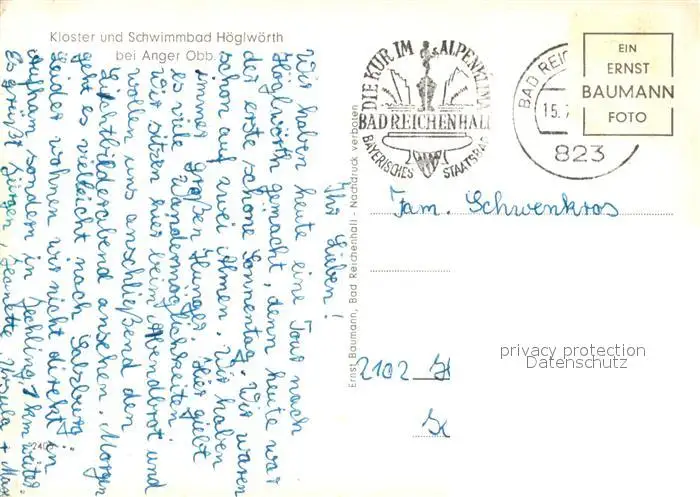 Kloster und Schwimmbad Höglwörth
bei Anger Obb.
Ihr Lieben!
Wir haben heute eine Tour nach
Höglwörth gemacht, denn heute war
der erste schöne Sonnentag. Wir waren
schon auf zwei Almen. Wir haben
immer großen Hunger. Hier gibt
es viele Wandermöglichkeiten
Wir sitzen hier beim Abendbrot und
wollen uns anschließend den
Lichtbilderabend ansehen. Morgen
geht es vielleicht nach Salzburg
Leider wohnen wir nicht direkt in
Aufham sondern in Jechling, 1 km weiter.
Es grüßt Jürgen, Jeanette Ursula + Max
Ernst Baumann, Bad Reichenhall - Nachdruck verboten
DIE KUR IM ALPENKLIMA
BAD REICHENHALL
BAYERISCHES STAATSBAD
BAD REIC
15.7
823
EIN
ERNST
BAUMANN
FOTO
Fam. Schwenkros
2102
privacy protection
Datenschutz